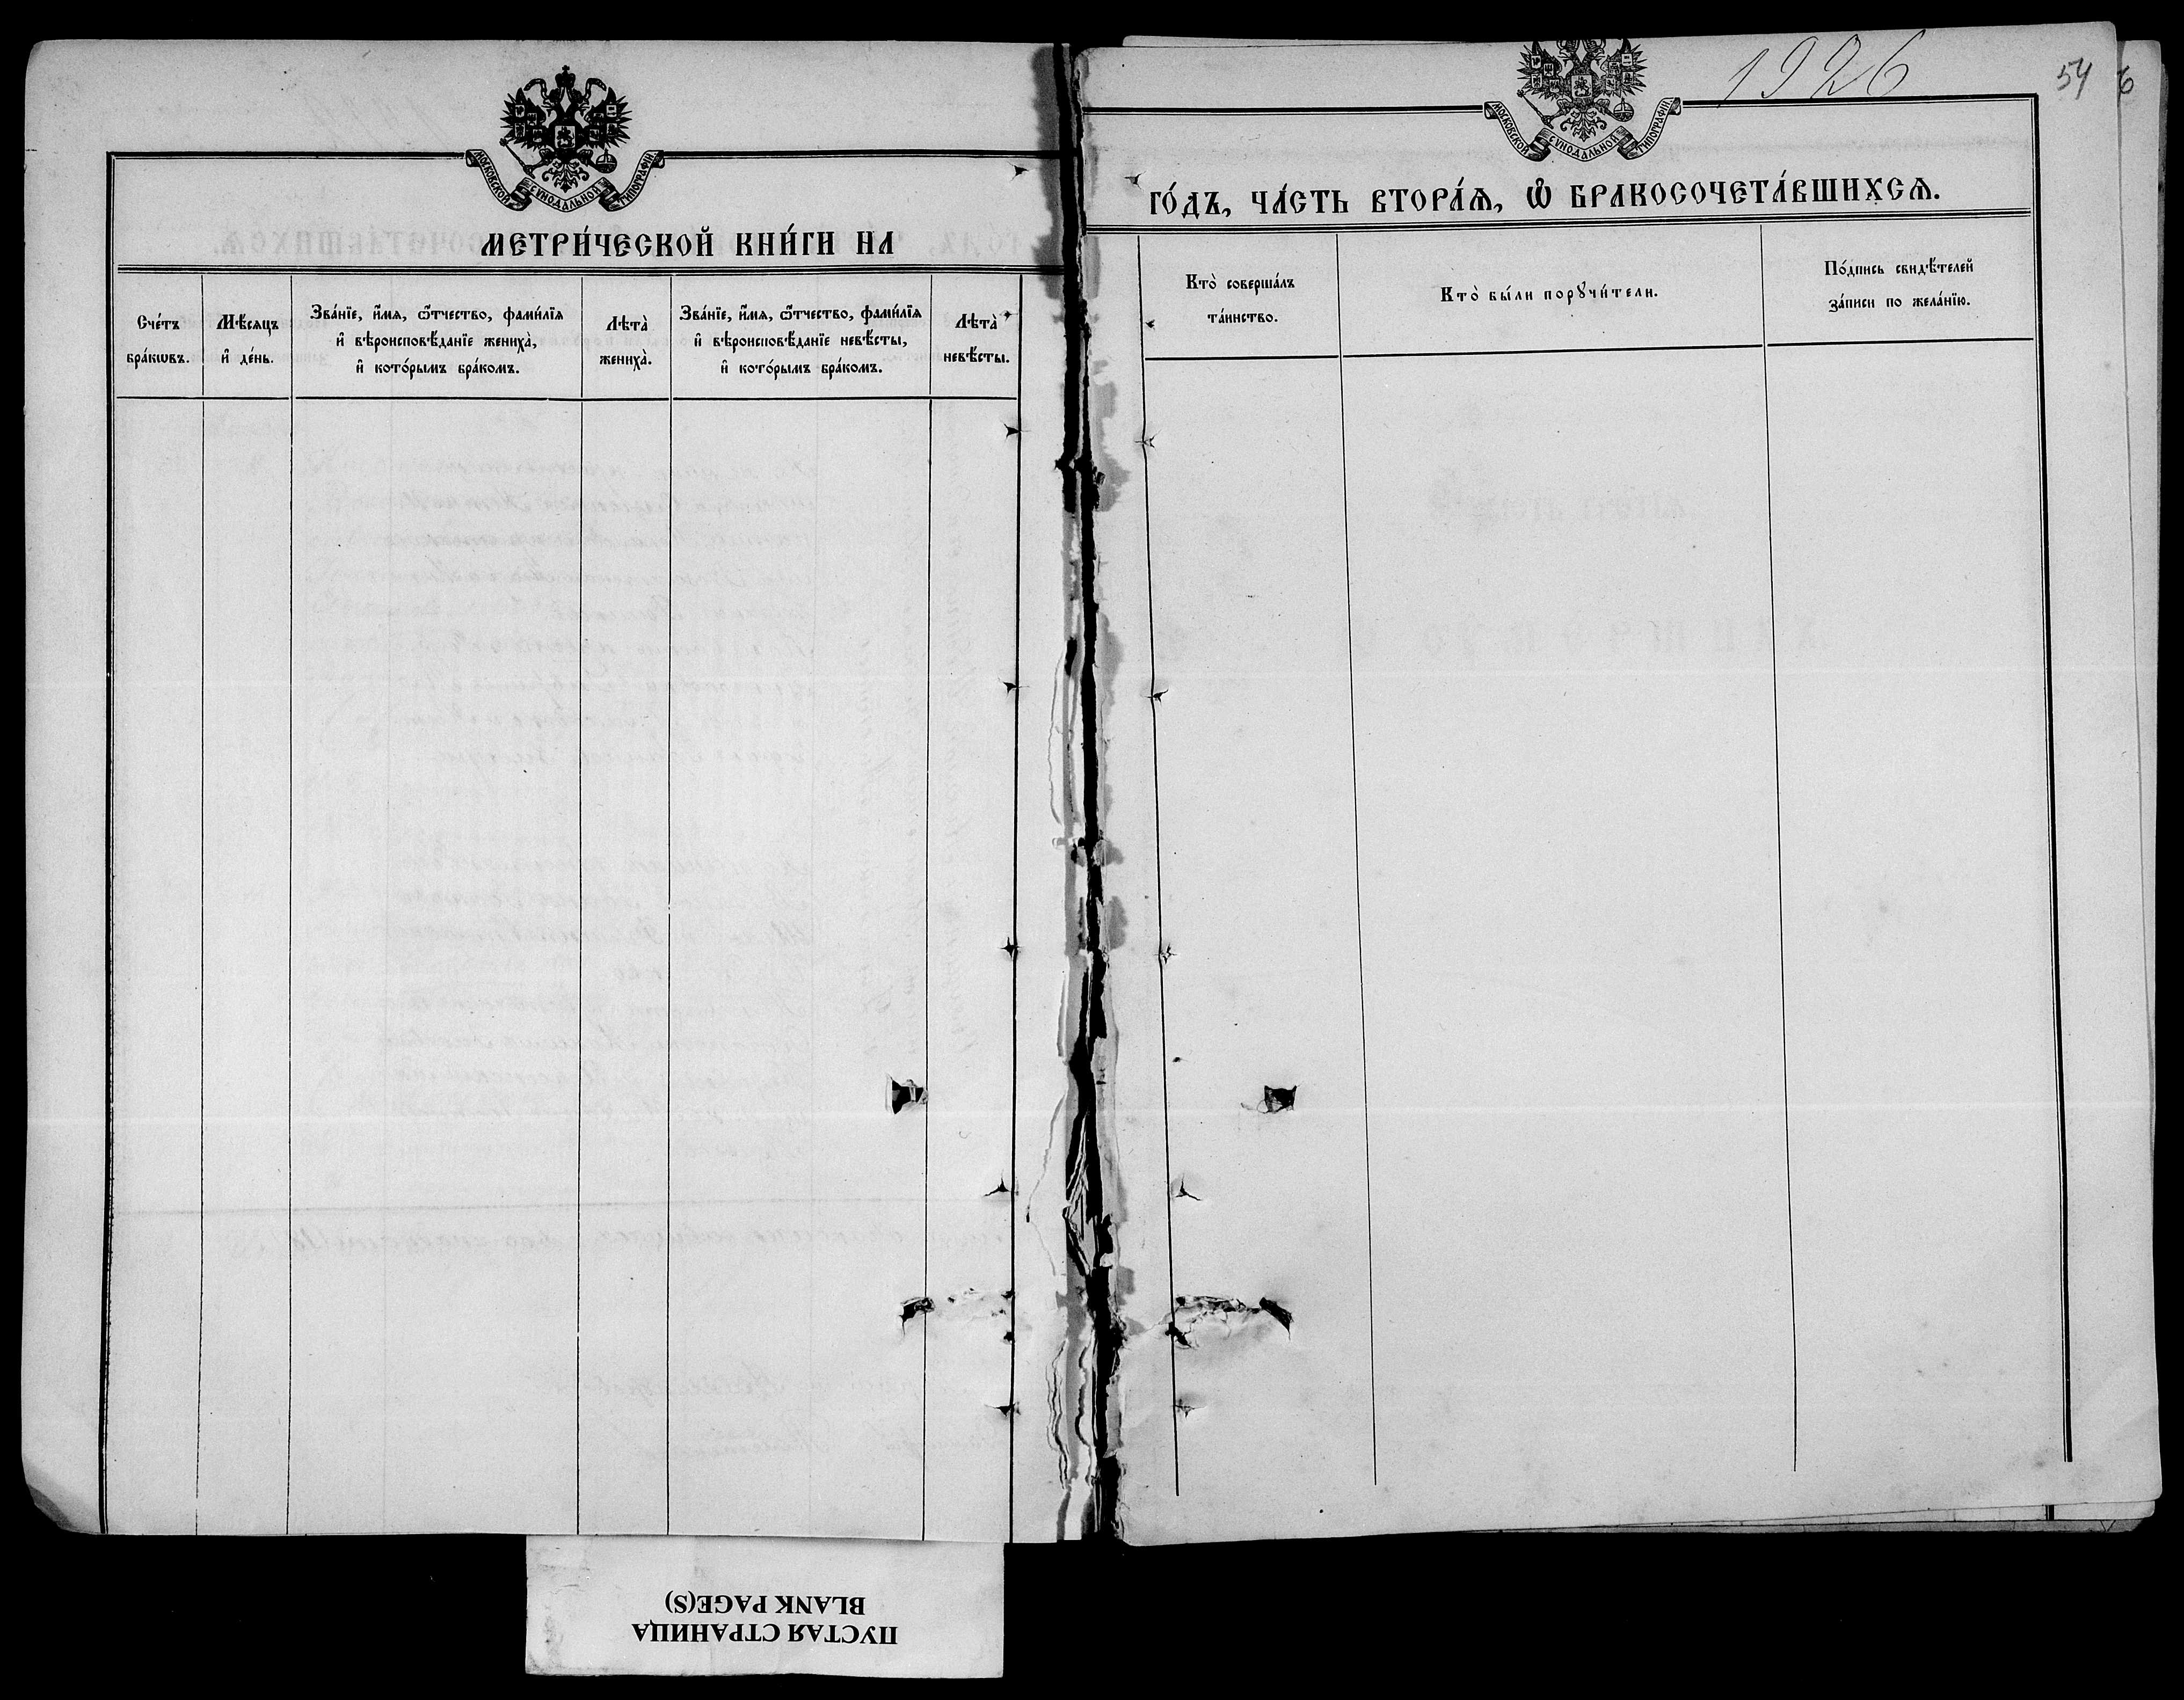 МОСКОВСКОЙ СѴНОДАЛЬНОЙ ТИПОГРАФІИ
МЕТРИ́ЧЕСКОЙ КНИ́ГИ НА
Сче́тъ
бра́кѡвъ.
Мѣ́сяцъ
и҆ де́нь.
Зва́нїе, и҆́мя, ѻ҆́тчество, фами́лїя
и҆ вѣроисповѣ́данїе женихà,
и҆ кото́рымъ бра́комъ.
Лѣтà
женихà.
Зва́нїе, и҆́мя, ѻ҆́тчество, фами́лїя
и҆ вѣроисповѣ́данїе невѣ́сты,
и҆ кото́рымъ бра́комъ.
Лѣтà
невѣ́сты.
1926
54
6
МОСКОВСКОЙ СѴНОДАЛЬНОЙ ТИПОГРАФІИ
ГО́ДЪ, ЧА́СТЬ ВТОРА́Ѧ, Ѽ БРАКОСОЧЕТА́ВШИХСѦ.
Ктò соверша́лъ
та́инство.
Ктò бы́ли порꙋчи́тели.
По́дпись свидѣ́телей
за́писи по жела́нїю.
ПУСТАЯ СТРАНИЦА
BLANK PAGE(S)